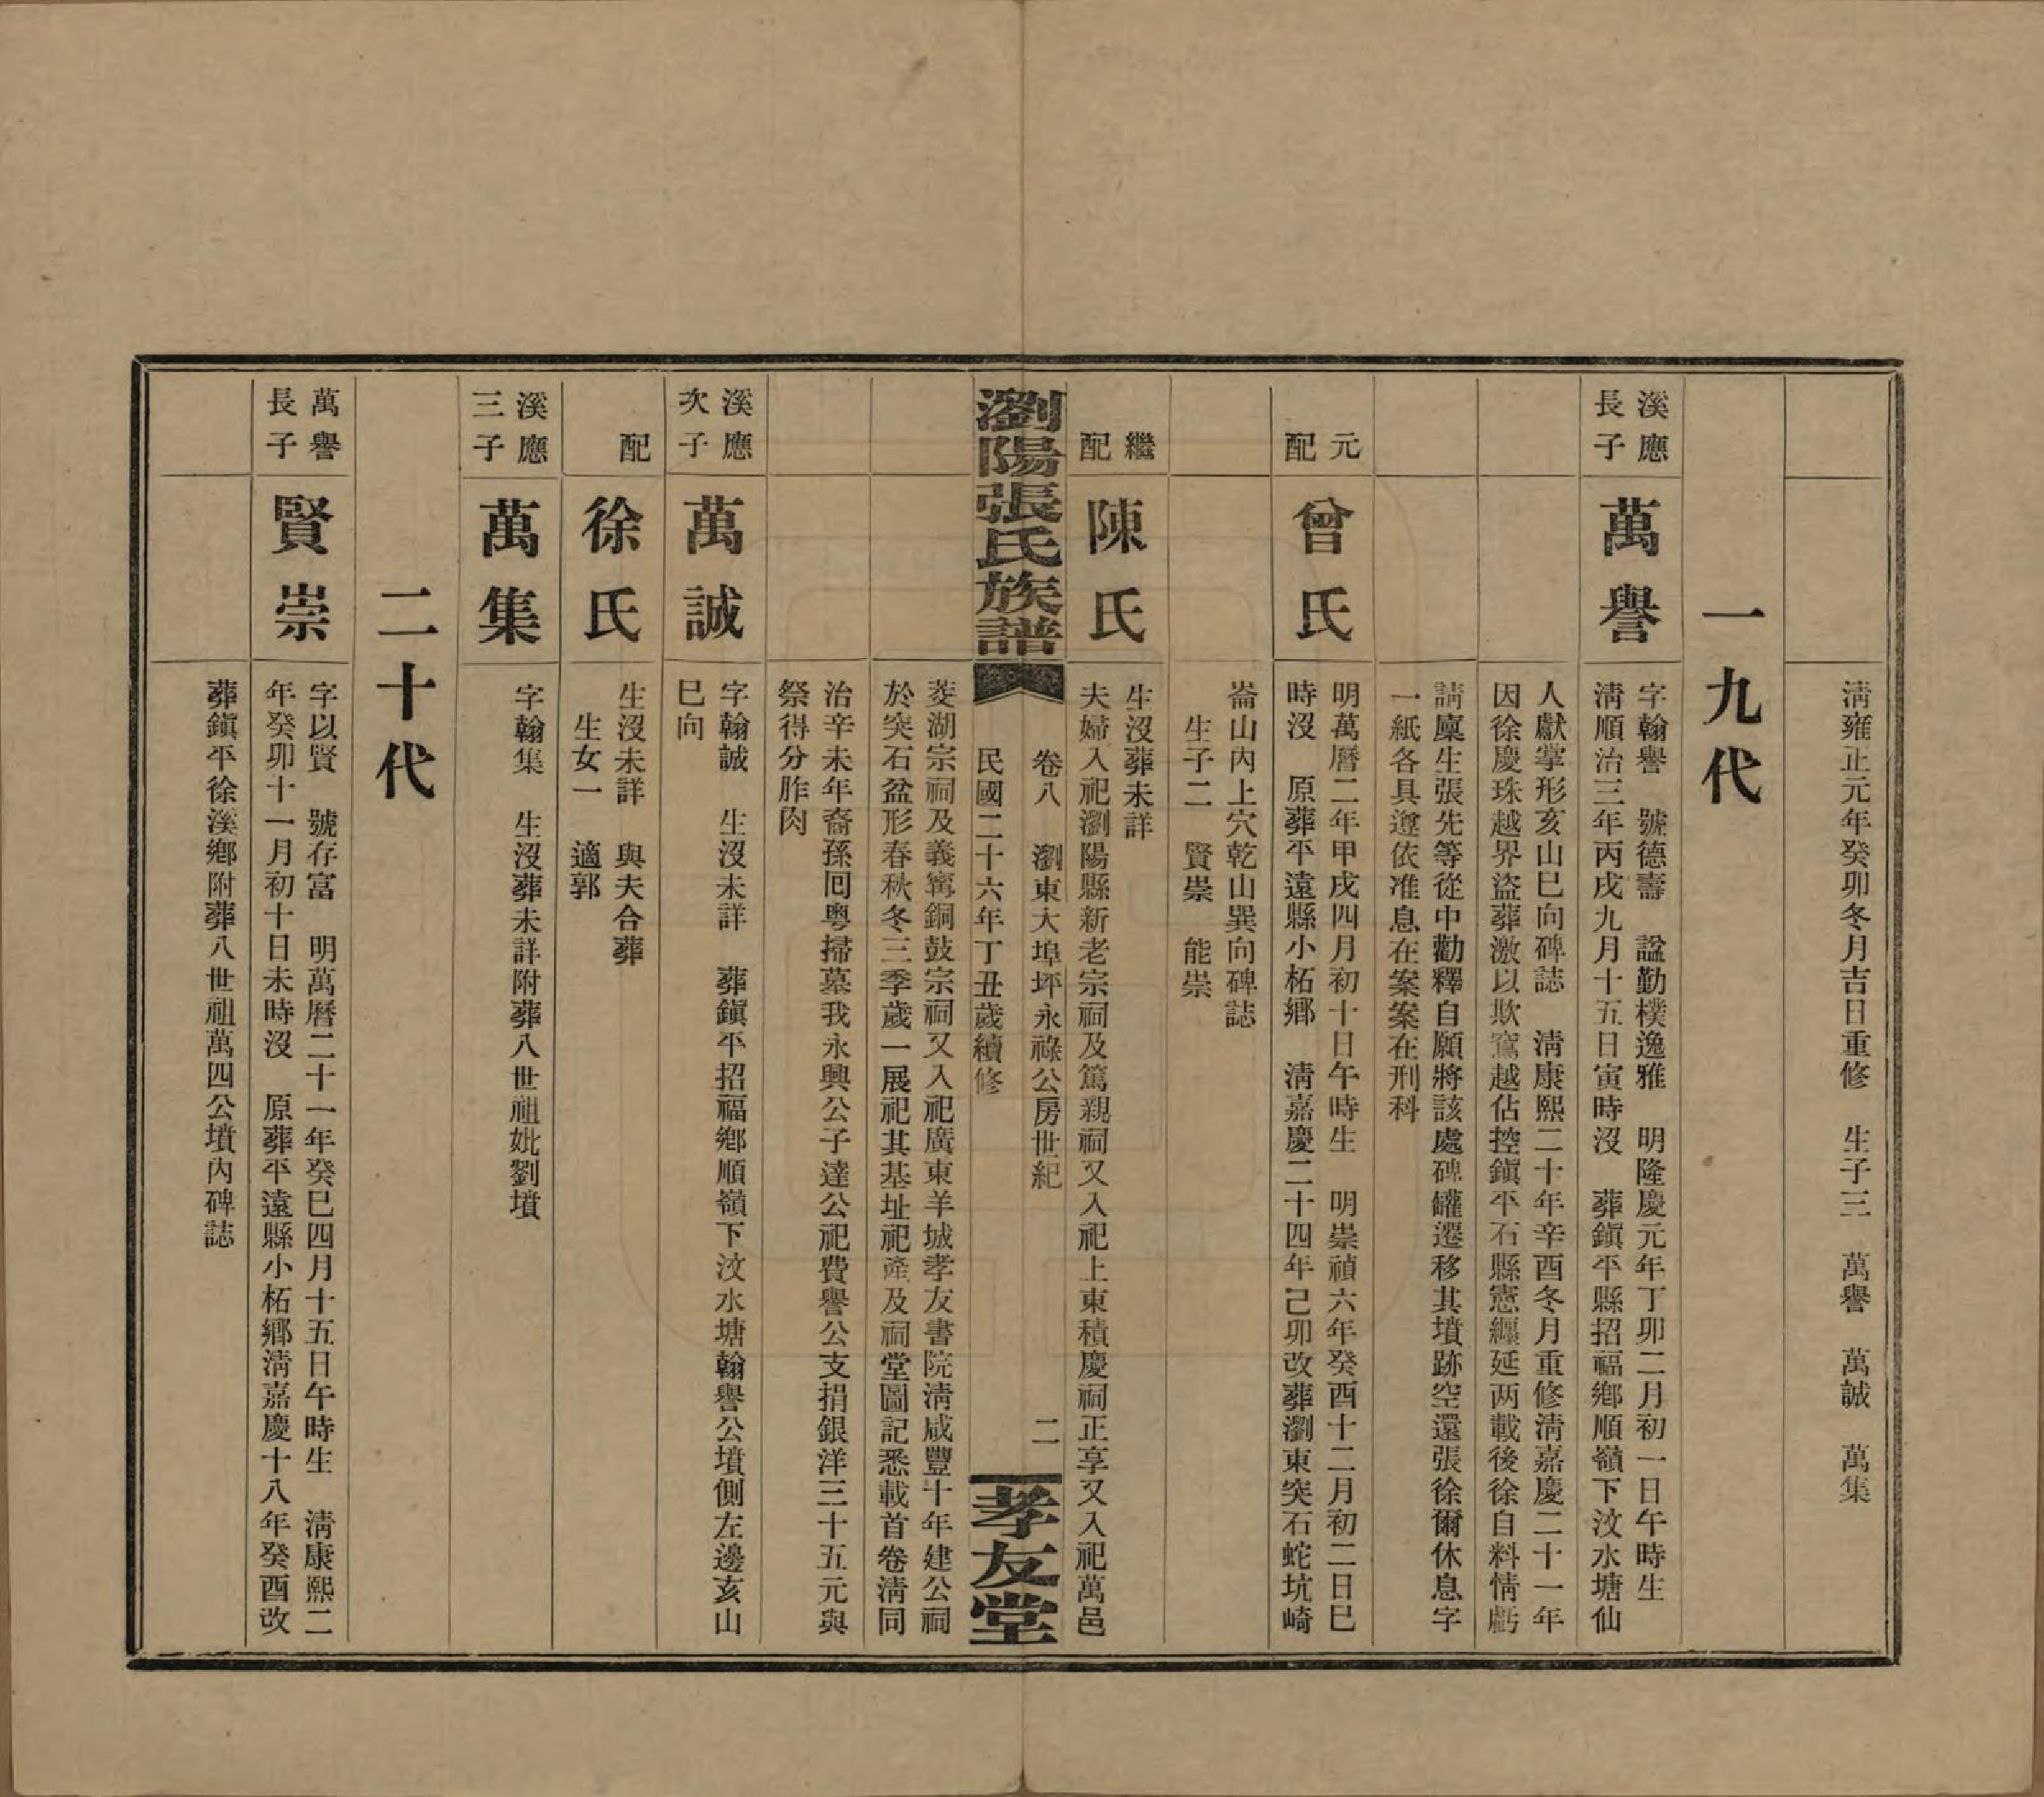 清雍正元年癸卯冬月吉日重修　生子三　萬譽　萬誠　萬集
一九代
溪應
長子
萬譽
字翰譽　號德壽　諡勤樸逸雅　明隆慶元年丁卯二月初一日午時生
清順治三年丙戌九月十五日寅時沒　葬鎮平縣招福鄉順嶺下汶水塘仙
人獻掌形亥山巳向碑誌　清康熙二十年辛酉冬月重修清嘉慶二十一年
因徐慶珠越界盜葬激以欺騫越佔控鎮平石縣憲纏延两載後徐自料情虧
請廩生張先等從中勸釋自願將該處碑罐遷移其墳跡空還張徐爾休息字
一紙各具遵依准息在案案在刑科
元
配
曾氏
明萬曆二年甲戌四月初十日午時生　明崇禎六年癸酉十二月初二日巳
時沒　原葬平遠縣小柘鄉　清嘉慶二十四年己卯改葬瀏東突石蛇坑崎
崙山內上穴乾山巽向碑誌
生子二　賢崇　能崇
繼
配
陳氏
生沒葬未詳
夫婦入祀瀏陽縣新老宗祠及篤親祠又入祀上東積慶祠正享又入祀萬邑
瀏陽張氏族譜
卷八　瀏東大埠坪永祿公房世紀　二
民國二十六年丁丑歲續修
孝友堂
菱湖宗祠及義甯銅鼓宗祠又入祀廣東羊城孝友書院清咸豐十年建公祠
於突石盆形春秋冬三季歲一展祀其基址祀產及祠堂圖記悉載首卷清同
治辛未年裔孫囘粤掃墓我永興公子達公祀費譽公支捐銀洋三十五元與
祭得分胙肉
溪應
次子
萬誠
字翰誠　生沒未詳　葬鎮平招福鄉順嶺下汶水塘翰譽公墳側左邊亥山
巳向
配
徐氏
生沒未詳　與夫合葬
生女一　適郭
溪應
三子
萬集
字翰集　生沒葬未詳附葬八世祖妣劉墳
二十代
萬譽
長子
賢崇
字以賢　號存富　明萬曆二十一年癸巳四月十五日午時生　清康熙二
年癸卯十一月初十日未時沒　原葬平遠縣小柘鄉清嘉慶十八年癸酉改
葬鎮平徐溪鄉附葬八世祖萬四公墳內碑誌